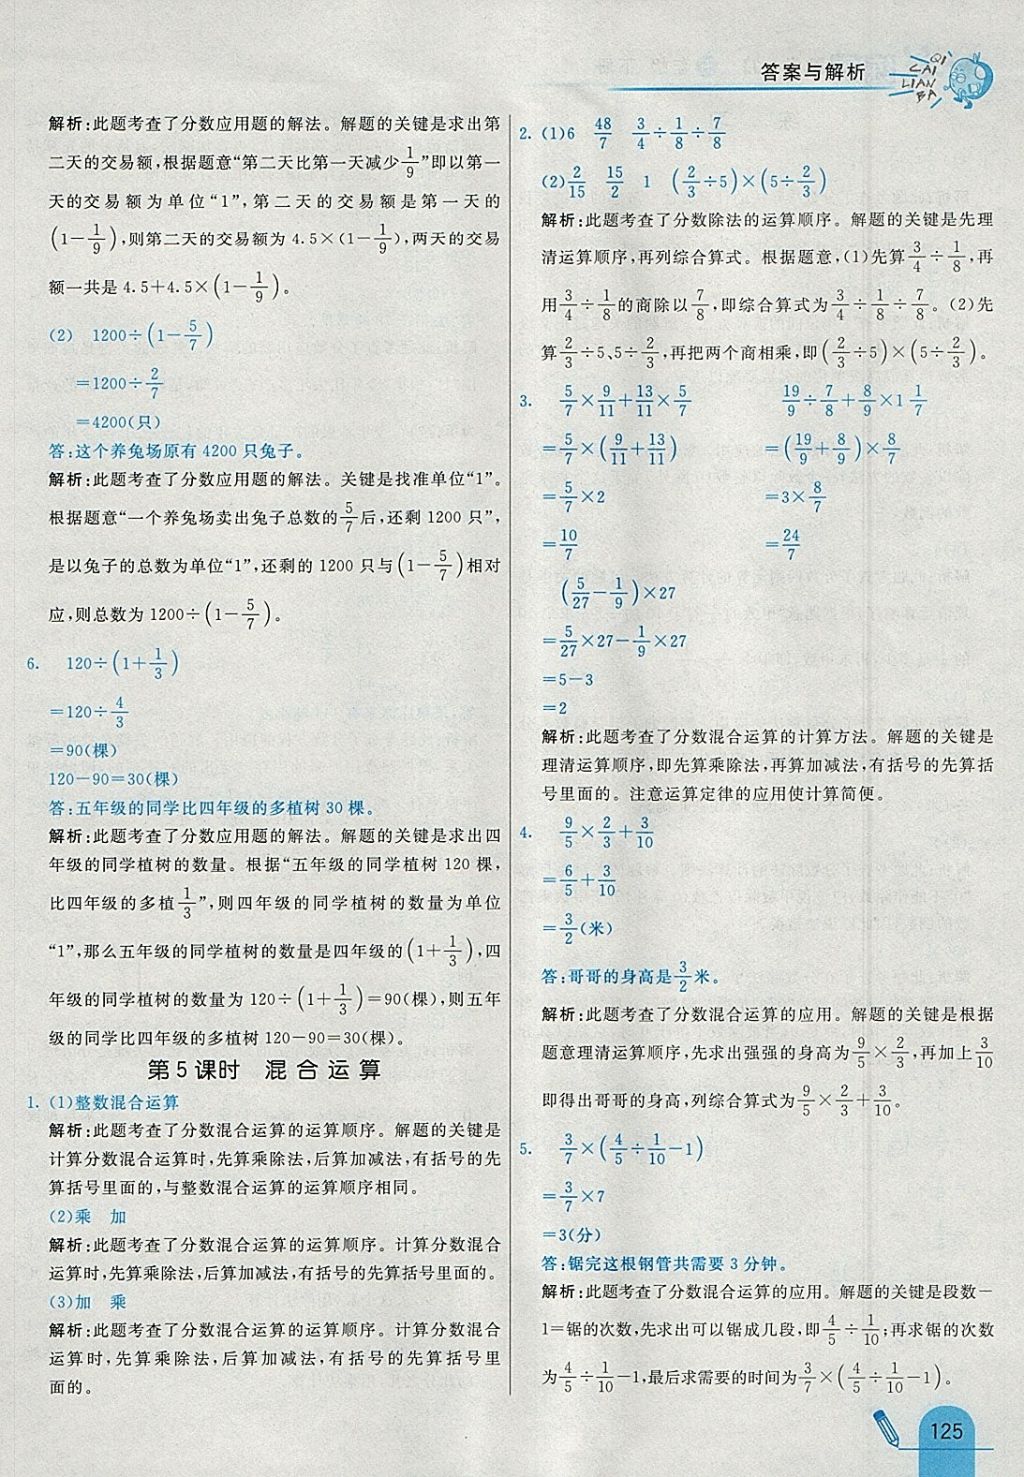 答案与解析
QI
LAI
LIAN
BA
解析:此题考查了分数应用题的解法。解题的关键是求出第
二天的交易额,根据题意“第二天比第一天减少1/9”即以第一
天的交易额为单位“1”,第二天的交易额是第一天的
(1-1/9),则第二天的交易额为 4.5×(1-1/9),两天的交易
额一共是 4.5+4.5×(1-1/9)。
(2) 1200÷(1-5/7)
=1200÷2/7
=4200(只)
答:这个养兔场原有 4200 只兔子。
解析:此题考查了分数应用题的解法。关键是找准单位“1”。
根据题意“一个养兔场卖出兔子总数的5/7后,还剩 1200 只”,
是以兔子的总数为单位“1”,还剩的 1200 只与(1-5/7)相对
应,则总数为 1200÷(1-5/7)。
6. 120÷(1+1/3)
=120÷4/3
=90(棵)
120-90=30(棵)
答:五年级的同学比四年级的多植树 30 棵。
解析:此题考查了分数应用题的解法。解题的关键是求出四
年级的同学植树的数量。根据“五年级的同学植树 120 棵,
比四年级的多植1/3”,则四年级的同学植树的数量为单位
“1”,那么五年级的同学植树的数量是四年级的(1+1/3),四
年级的同学植树的数量为 120÷(1+1/3)=90(棵),则五年
级的同学比四年级的多植树 120-90=30(棵)。
第 5 课时 混合运算
1. (1)整数混合运算
解析:此题考查了分数混合运算的运算顺序。解题的关键是
计算分数混合运算时,先算乘除法,后算加减法,有括号的先
算括号里面的,与整数混合运算的运算顺序相同。
(2)乘 加
解析:此题考查了分数混合运算的运算顺序。计算分数混合
运算时,先算乘除法,后算加减法,有括号的先算括号里面的。
(3)加 乘
解析:此题考查了分数混合运算的运算顺序。计算分数混合
运算时,先算乘除法,后算加减法,有括号的先算括号里
面的。
2. (1)6 48/7 3/4÷1/8÷7/8
(2)2/15 15/2 1 (2/3÷5)×(5÷2/3)
解析:此题考查了分数除法的运算顺序。解题的关键是先理
清运算顺序,再列综合算式。根据题意,(1)先算3/4÷1/8,再
用3/4÷1/8的商除以7/8,即综合算式为3/4÷1/8÷7/8。(2)先
算2/3÷5、5÷2/3,再把两个商相乘,即(2/3÷5)×(5÷2/3)。
3. 5/7×9/11+13/11×5/7 19/9÷7/8+8/9×1 1/7
=5/7×(9/11+13/11) =(19/9+8/9)×8/7
=5/7×2 =3×8/7
=10/7 =24/7
(5/27-1/9)×27
=5/27×27-1/9×27
=5-3
=2
解析:此题考查了分数混合运算的计算方法。解题的关键是
理清运算顺序,即先算乘除法,再算加减法,有括号的先算括
号里面的。注意运算定律的应用使计算简便。
4. 9/5×2/3+3/10
=6/5+3/10
=3/2(米)
答:哥哥的身高是3/2米。
解析:此题考查了分数混合运算的应用。解题的关键是根据
题意理清运算顺序,先求出强强的身高为9/5×2/3,再加上3/10
即得出哥哥的身高,列综合算式为9/5×2/3+3/10。
5. 3/7×(4/5÷1/10-1)
=3/7×7
=3(分)
答:锯完这根钢管共需要 3 分钟。
解析:此题考查了分数混合运算的应用。解题的关键是段数-
1=锯的次数,先求出可以锯成几段,即4/5÷1/10;再求锯的次数
为4/5÷1/10-1,最后求需要的时间为3/7×(4/5÷1/10-1)。
125